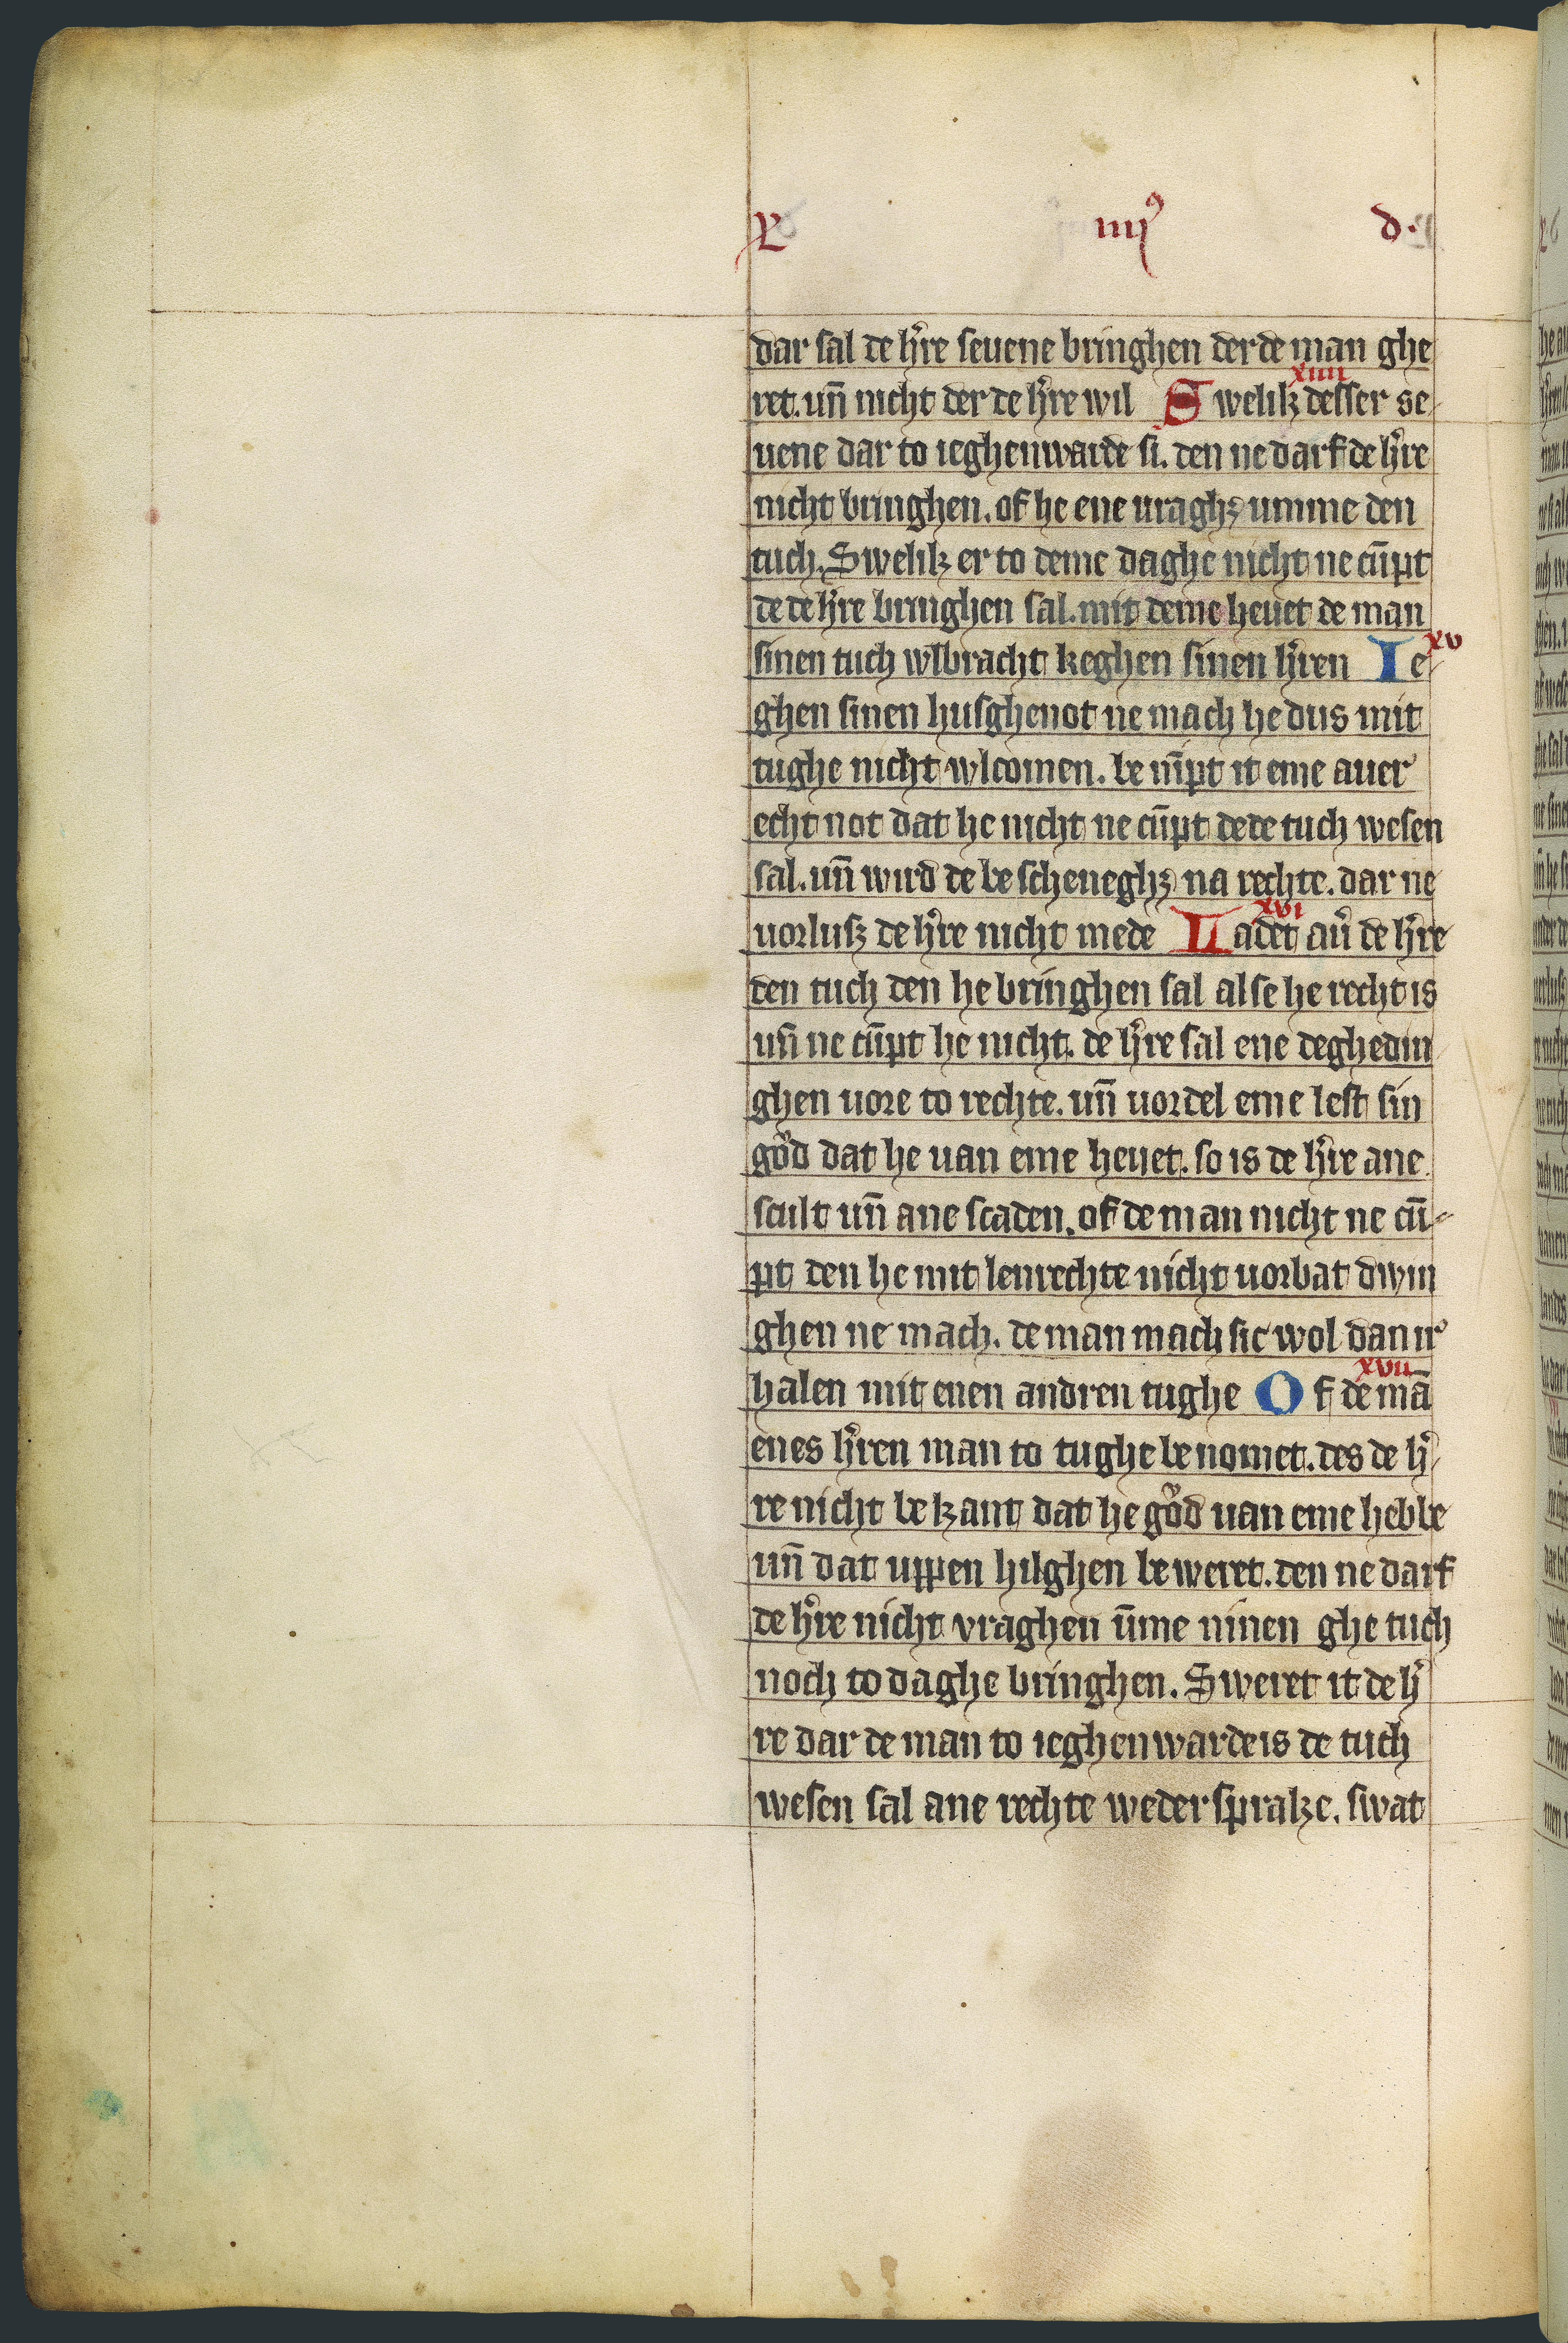 X iiii⁹ d.
dar sal de h̓re seuene bringhen der de man ghe
ret. un̄ nicht der de h̓re wil xiiii Swelik desser se
uene dar to ieghenwarde si. den ne darf de h̓re
nicht bringhen. of he ene uraghꝫ umme den
tuch. Swelik er to deme daghe nicht ne cūpt
de de h̓re bringhen sal. mit deme heuet de man
sinen tuch wlbracht keghen sinen h̓ren Ie xv
ghen sinen husghenot ne mach he dus mit
tughe nicht wlcomen. be nīpt it eme auer
echt not dat he nicht ne cūpt de de tuch wesen
sal. un̄ wird de be scheneghꝫ na rechte. dar ne
uorlusꝫ de h̓re nicht mede xvi Ladet au̓ de h̓re
den tuch den he bringhen sal alse he recht is
un̄ ne cūpt he nicht. de h̓re sal ene deghedin
ghen uore to rechte. un̄ uordel eme lest sin
gůd dat he uan eme heuet. so is de h̓re ane
scult un̄ ane scaden. of de man nicht ne cū
pt den he mit lenrechte nicht uorbat dwin
ghen ne mach. de man mach sic wol dan ir
halen mit enen andren tughe xvii Of de mā
enes h̓ren man to tughe be nomet. des de h̓
re nicht be kant dat he gůd uan eme hebbe
un̄ dat uppen hilghen be weret. den ne darf
de h̓re nicht vraghen ūme ninen ghe tuch
noch to daghe bringhen. Sweret it de h̓
re dar de man to ieghenwarde is de tuch
wesen sal ane rechte weder sprake. swat